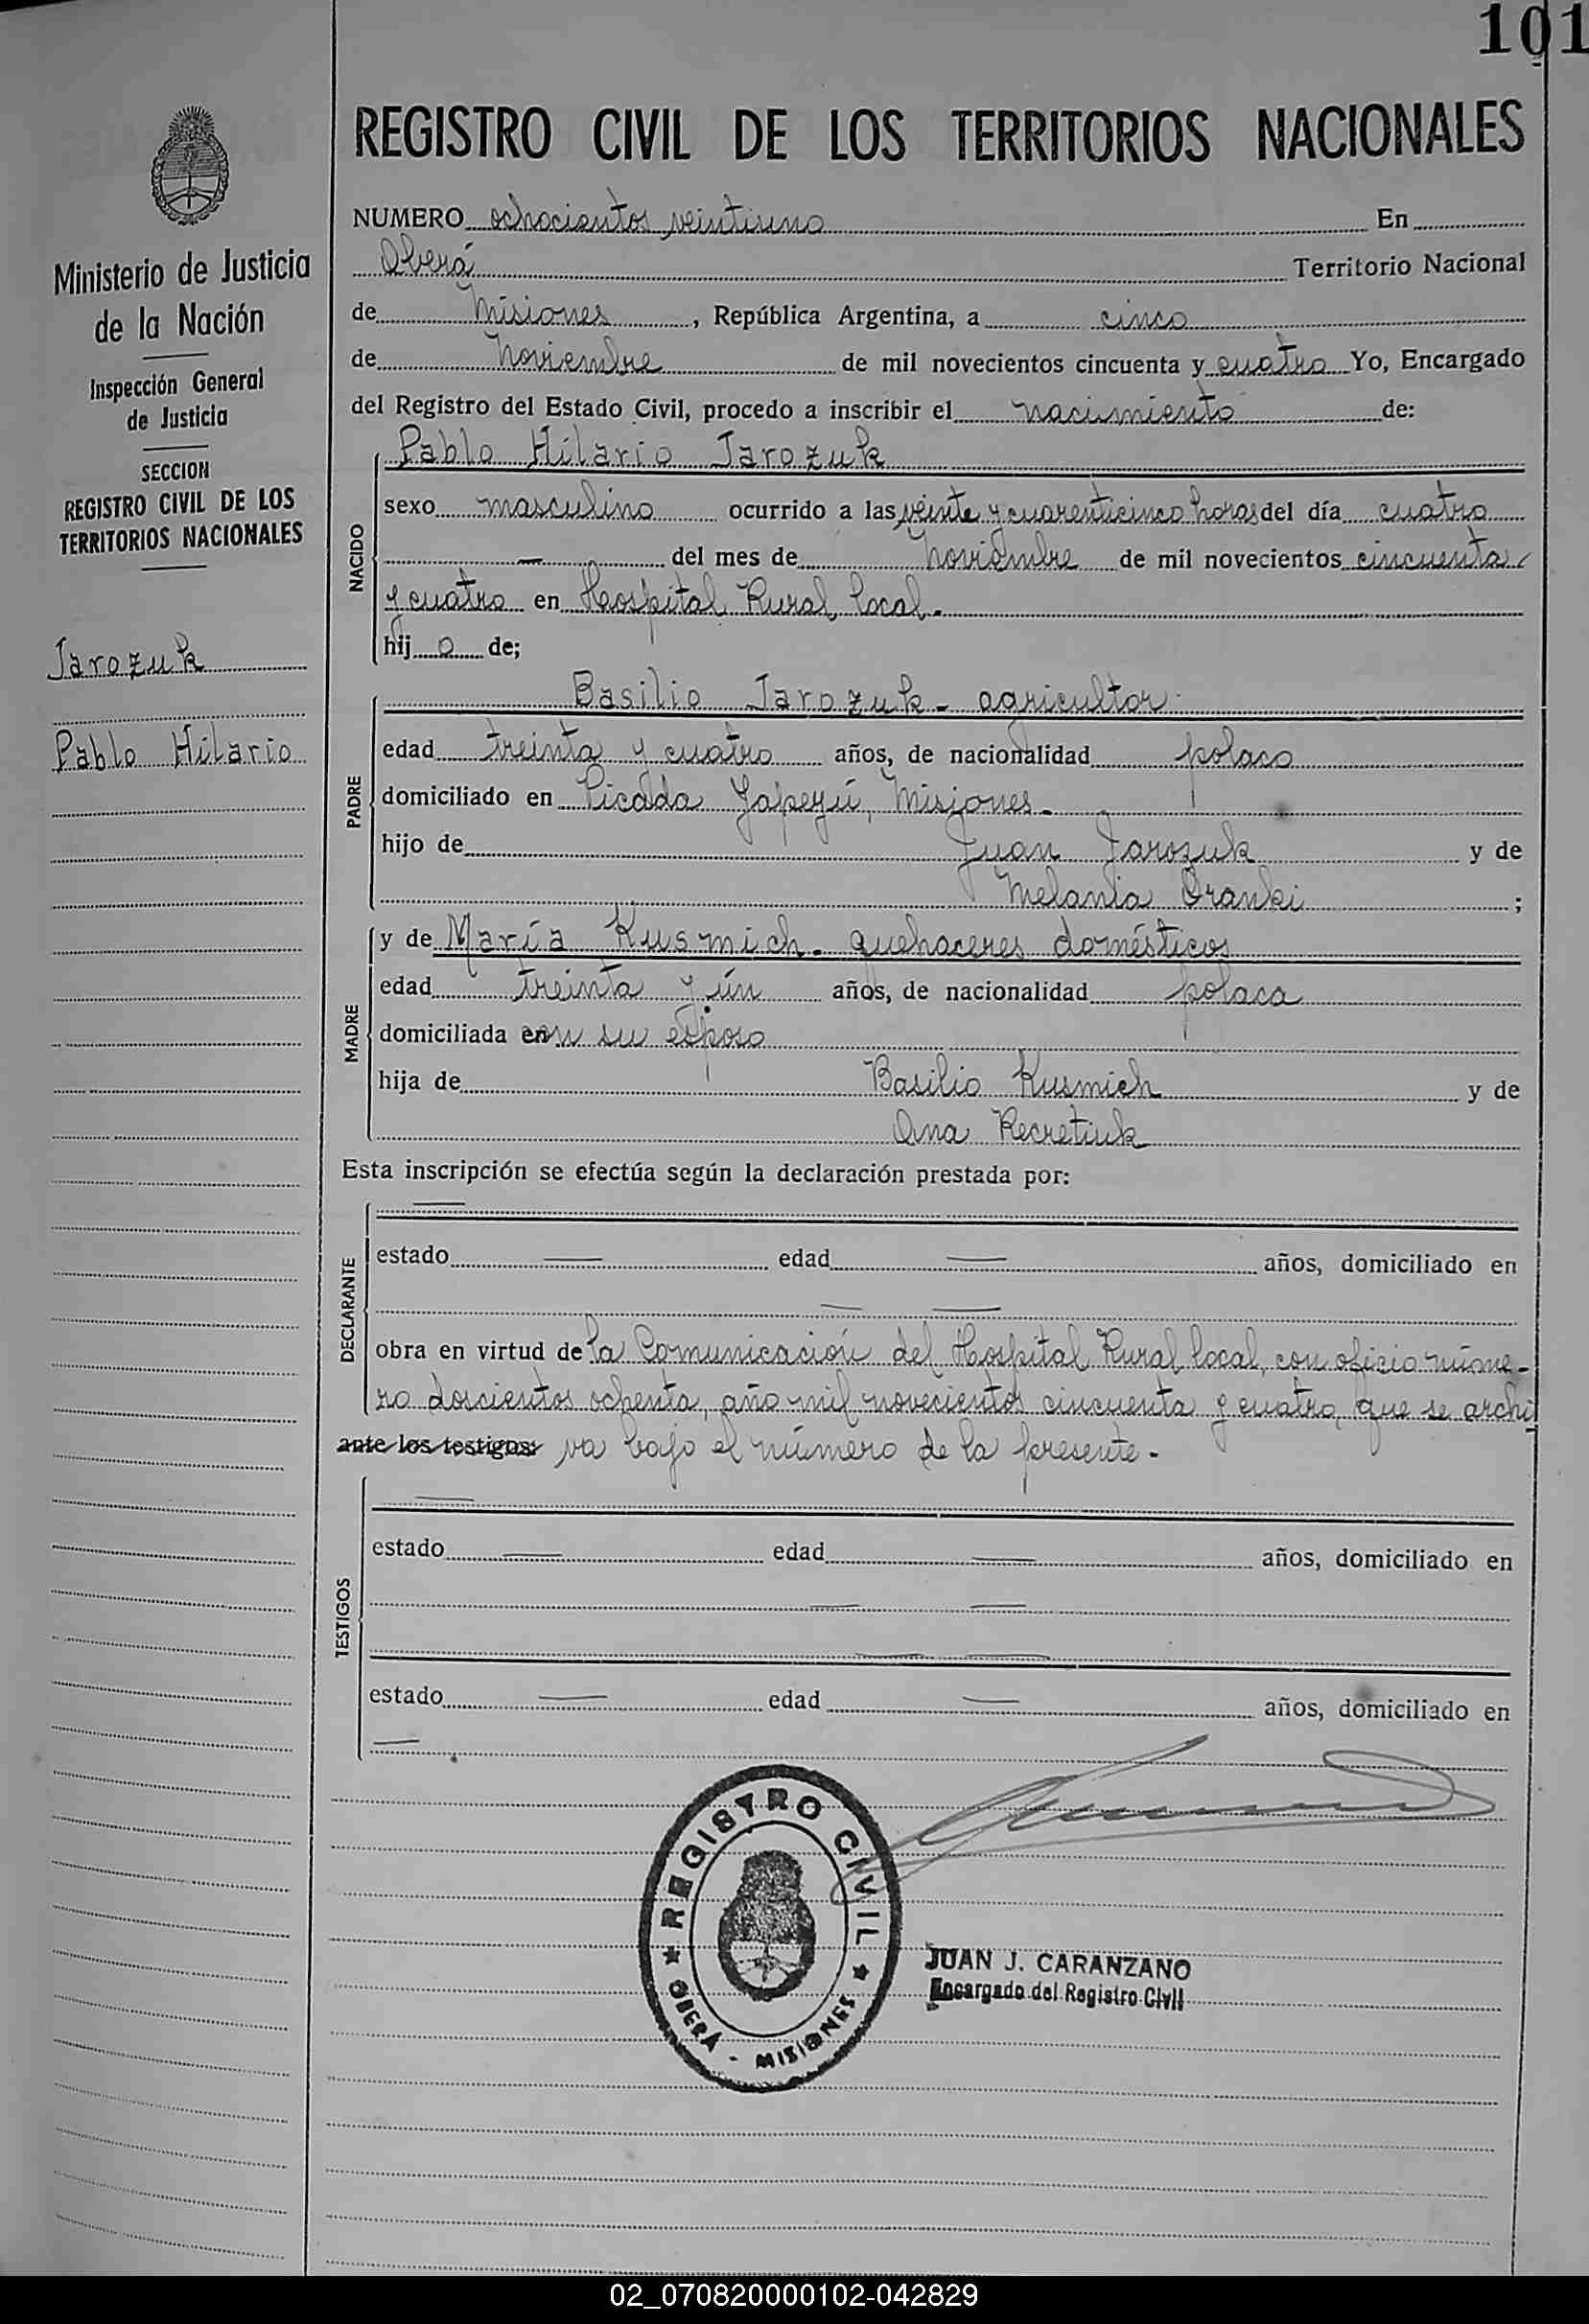 101
REGISTRO CIVIL DE LOS TERRITORIOS NACIONALES
Ministerio de Justicia
de la Nación
Inspección General
de Justicia
SECCION
REGISTRO CIVIL DE LOS
TERRITORIOS NACIONALES
Jarozuk
Pablo Hilario
NUMERO ochocientos veintiuno En
Oberá Territorio Nacional
de Misiones, República Argentina, a cinco
de Noviembre de mil novecientos cincuenta y cuatro Yo, Encargado
del Registro del Estado Civil, procedo a inscribir el nacimiento de:
NACIDO
Pablo Hilario Jarozuk
sexo masculino ocurrido a las veinte y cuarenticinco horas del día cuatro
— del mes de Noviembre de mil novecientos cincuenta
y cuatro en Hospital Rural local.
hijo de;
PADRE
Basilio Jarozuk - agricultor
edad treinta y cuatro años, de nacionalidad polaco
domiciliado en Picada Yapeyú, Misiones.
hijo de Juan Jarozuk y de
Melania Oranki ;
MADRE
y de María Kusmich. quehaceres domésticos
edad treinta y ún años, de nacionalidad polaca
domiciliada con su esposo
hija de Basilio Kusmich y de
Ana Recretiuk
Esta inscripción se efectúa según la declaración prestada por:
DECLARANTE
—
estado — edad — años, domiciliado en
— —
obra en virtud de la Comunicación del Hospital Rural local, con oficio núme-
ro doscientos ochenta, año mil novecientos cincuenta y cuatro, que se archi
ante los testigos: va bajo el número de la presente.-
TESTIGOS
—
estado — edad — años, domiciliado en
— —
— —
estado — edad — años, domiciliado en
—
REGISTRO CIVIL
OBERÁ - MISIONES
JUAN J. CARANZANO
Encargado del Registro Civil
02_070820000102-042829